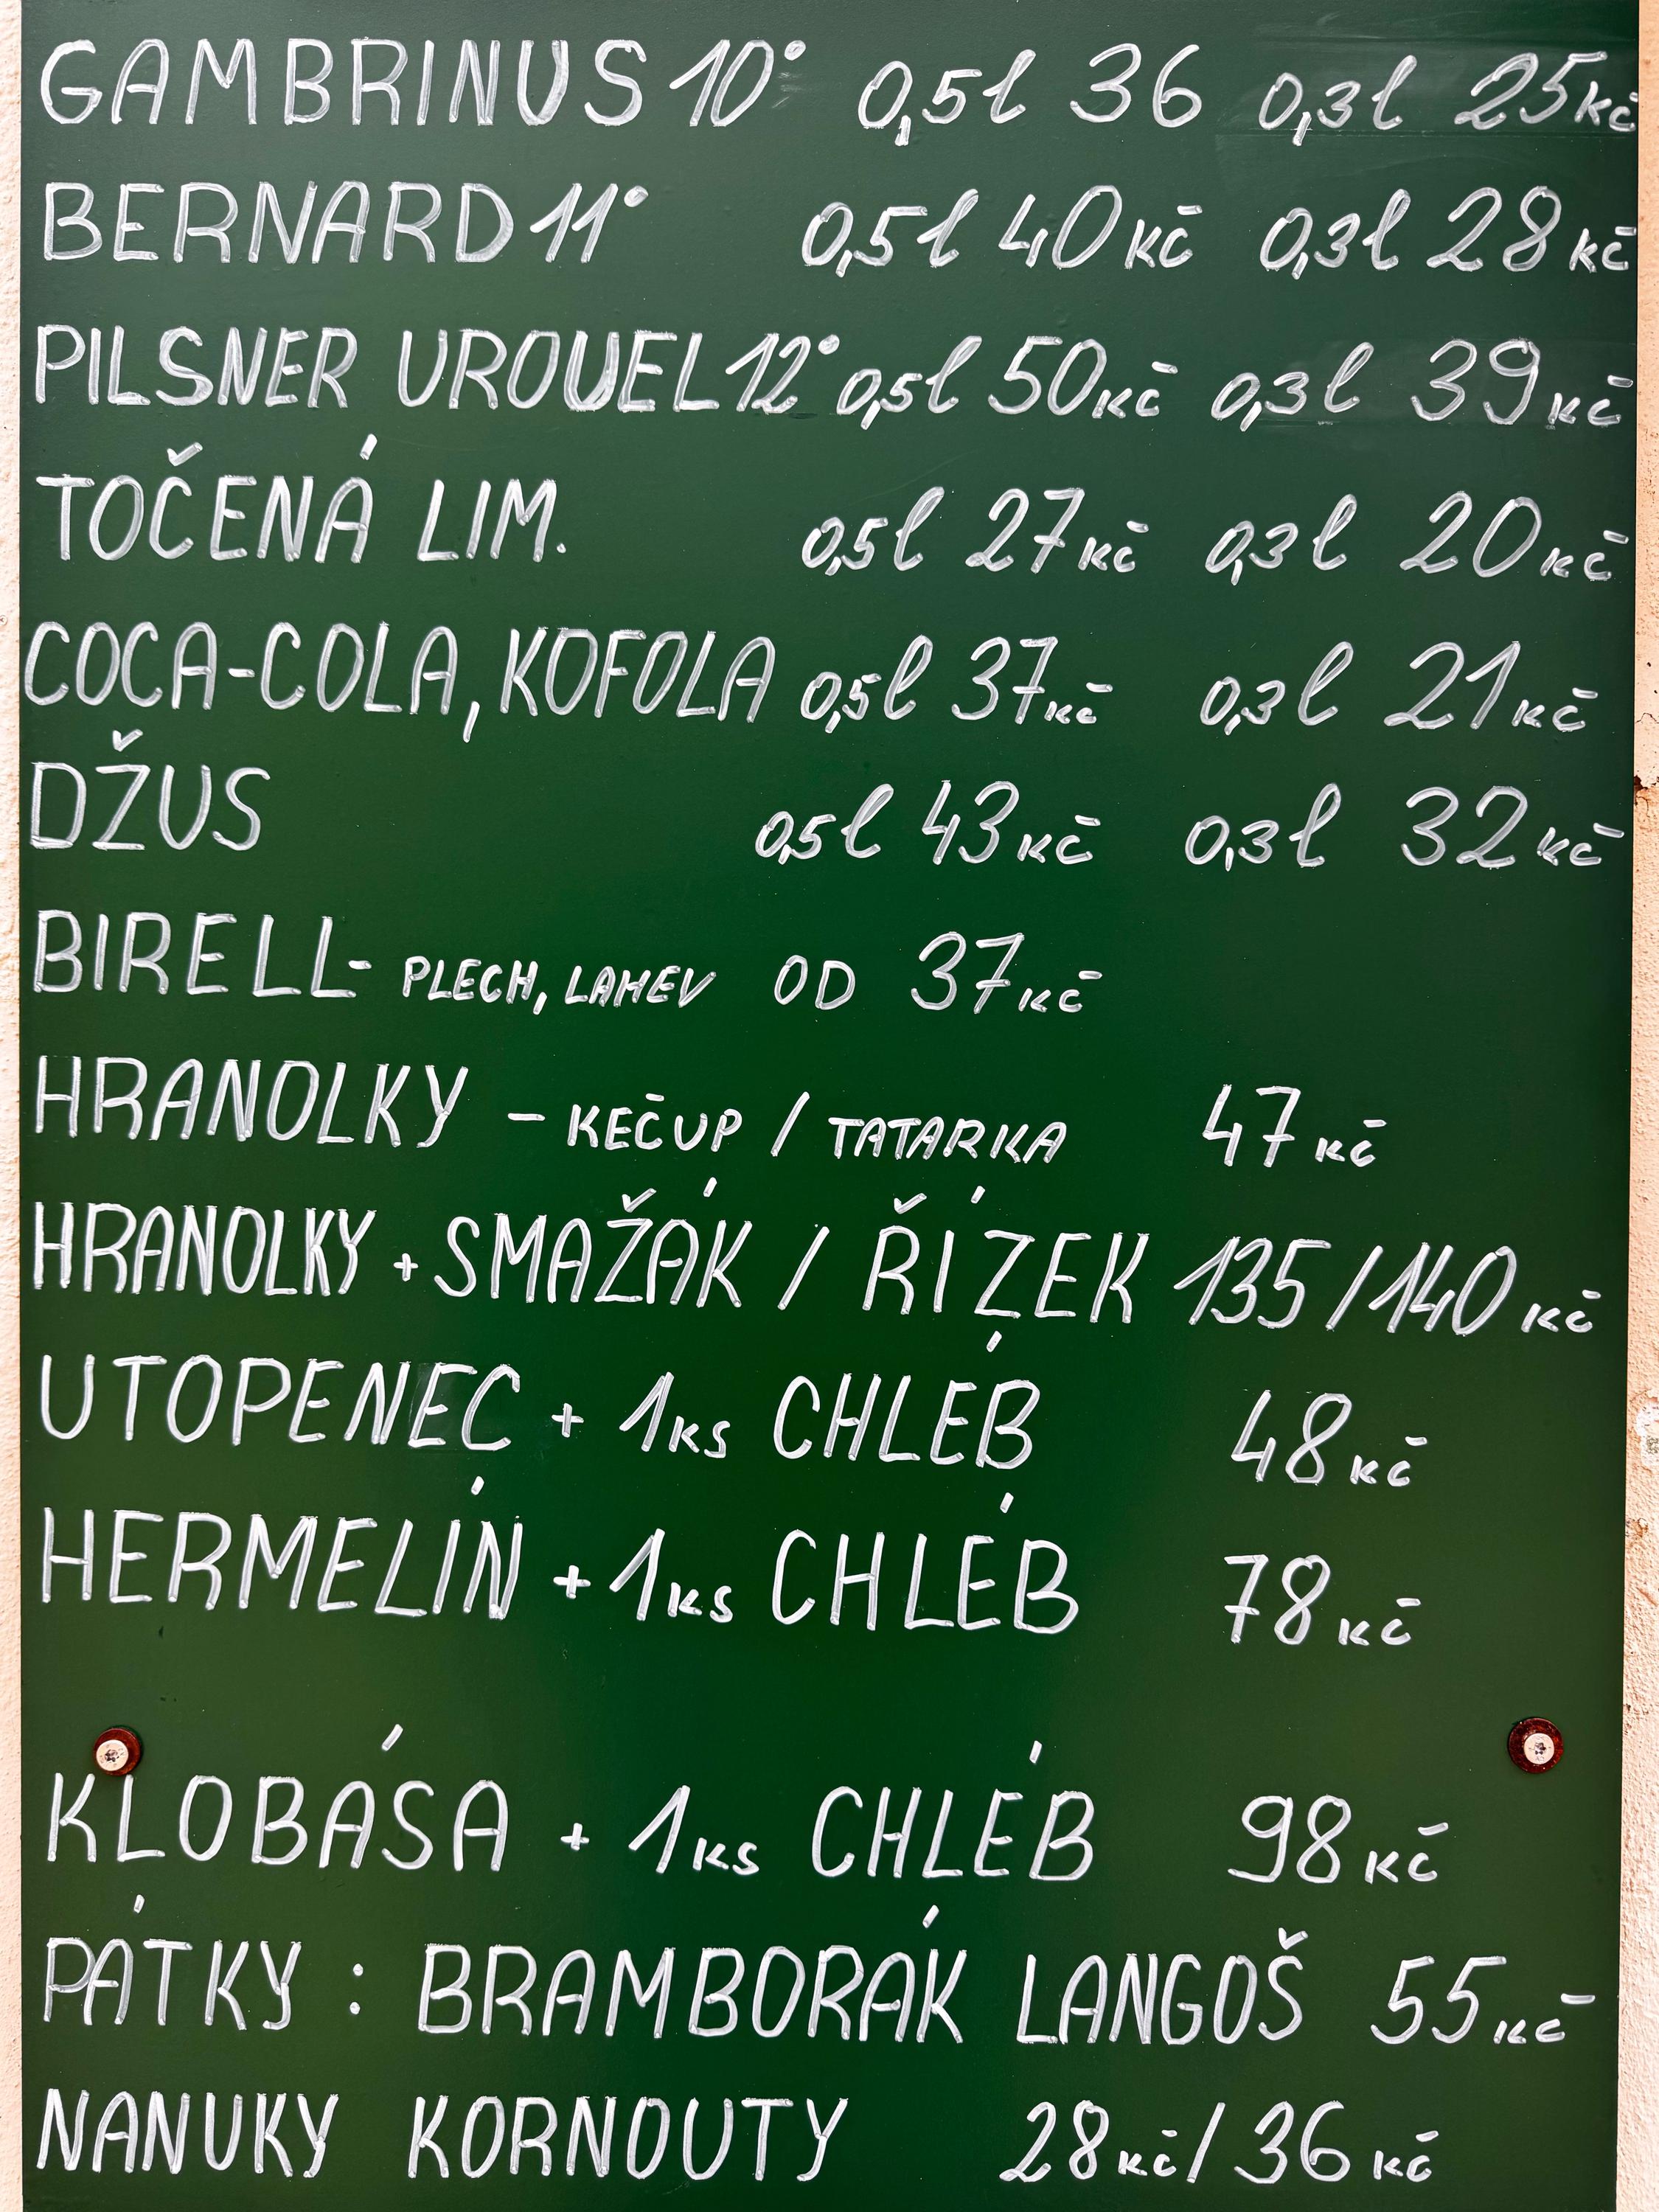 GAMBRINUS 10° 0,5l 36 0,3l 25 Kč
BERNARD 11° 0,5l 40 Kč 0,3l 28 Kč
PILSNER UROUEL 12° 0,5l 50 Kč 0,3l 39 Kč
TOČENÁ LIM. 0,5l 27 Kč 0,3l 20 Kč
COCA-COLA, KOFOLA 0,5l 37 Kč 0,3l 21 Kč
DŽUS 0,5l 43 Kč 0,3l 32 Kč
BIRELL- PLECH, LAHEV OD 37 Kč
HRANOLKY - KEČUP / TATARKA 47 Kč
HRANOLKY + SMAŽÁK / ŘÍZEK 135 / 140 Kč
UTOPENEC + 1 KS CHLÉB 48 Kč
HERMELÍN + 1 KS CHLÉB 78 Kč
KLOBÁSA + 1 KS CHLÉB 98 Kč
PÁTKY : BRAMBORÁK LANGOŠ 55 Kč
NANUKY KORNOUTY 28 Kč / 36 Kč